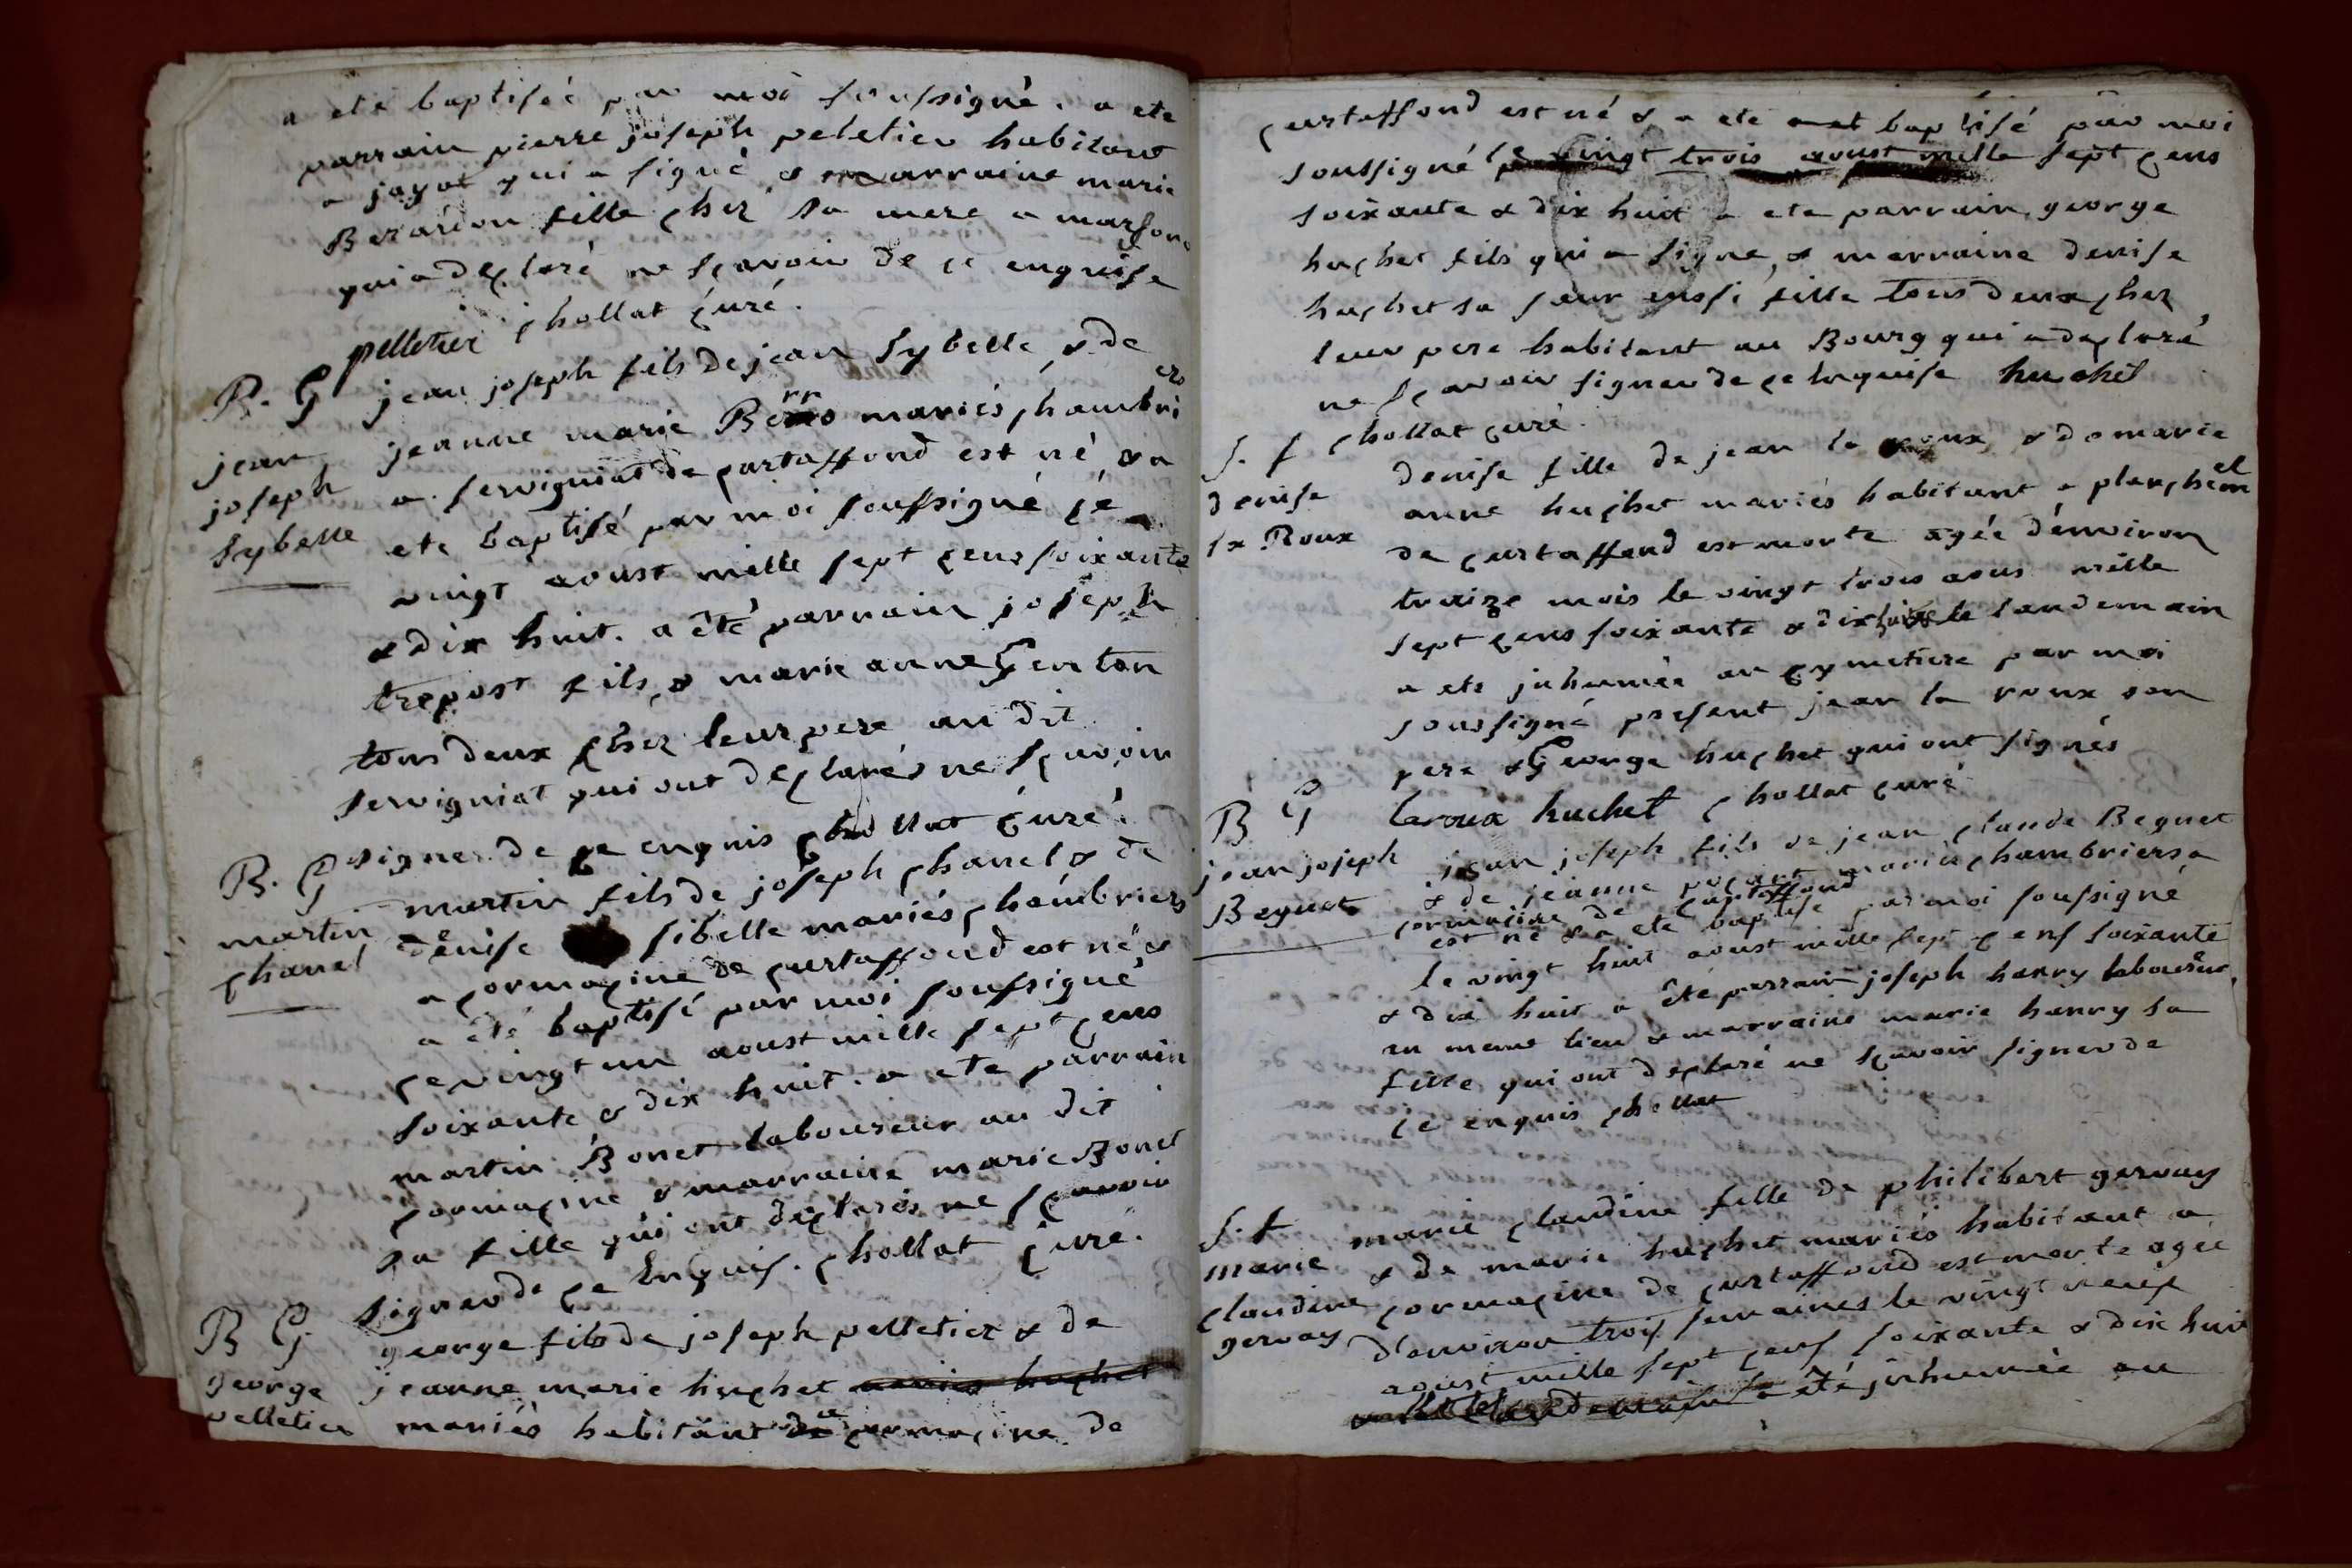 a ete baptisée par moi soussigné. a ete
parrain pierre joseph peletier habitant
a jayat qui a signé & marraine marie
Berardon fille chez sa mere a marson
qui a declaré ne sçavoir de ce enquise
pelletier chollat curé.
B. G
jean
joseph
sybelle
jean joseph fils de jean sybelle & de
jeanne marie Berro mariés chambriers
a servigniat de curtaffond est né & a
ete baptisé par moi soussigné ce
vingt aoust mille sept cens soixante
& dix huit. a êté parrain joseph
trepost fils & marie anne Genton
tous deux chez leur pere au dit
servigniat qui ont declarés ne sçavoir
signer de ce enquis chollat curé.
B. G
martin
chanel
martin fils de joseph chanel & de
denise sibelle mariés chambriers
a cormacine de curtaffond est né &
a été baptisé par moi soussigné
ce vingt un aoust mille sept cens
soixante & dix huit. a ete parrain
martin Bonet laboureur au dit
cormacine & marraine marie Bonet
sa fille qui ont declarés ne sçavoir
signer de ce Enquis. chollat curé.
B G
george
pelletier
george fils de joseph pelletier & de
jeanne marie huchet mariés huchet
mariés habitant de a cormacine de
curtaffond est né & a ete baptisé par moi
soussigné le vingt trois aoust mille sept cens
soixante & dix huit a ete parrain george
huchet fils qui a signe & marraine denise
huchet sa seur aussi fille tous deux chez
leur pere habitant au Bourg qui a declaré
ne sçavoir signer de ce Enquise huchet
chollat curé.
s. f
denise
la Roux
denise fille de jean la roux & de marie
anne huchet mariés habitant a planchem el
de curtaffond est morte agée d'environ
traize mois le vingt trois aous mille
sept cens soixante & dix huit le landemain
a ete inhumée au cymetiere par moi
soussigné présent jean la roux son
pere & George huchet qui ont signés
laroux huchet chollat curé
B G
jean joseph
Beguet
jean joseph fils de jean claude Beguet
& de jeanne mariés chambriers a
cormacine de curtaffond
est né & a ete baptisé par moi soussigné
le vingt huit aoust mille sept cens soixante
& dix huit a êté parrain joseph henry laboureur
au meme lieu & marraine marie henry sa
fille qui ont declaré ne sçavoir signer de
ce enquis chollat
s. f
marie
claudine
gervay
marie claudine fille de philibert gervay
& de marie huchet mariés habitant a
cormacine de curtaffond est morte agée
d'environ trois semaines le vingt neuf
aoust mille sept cens soixante & dix huit
le landemain a été inhumée au